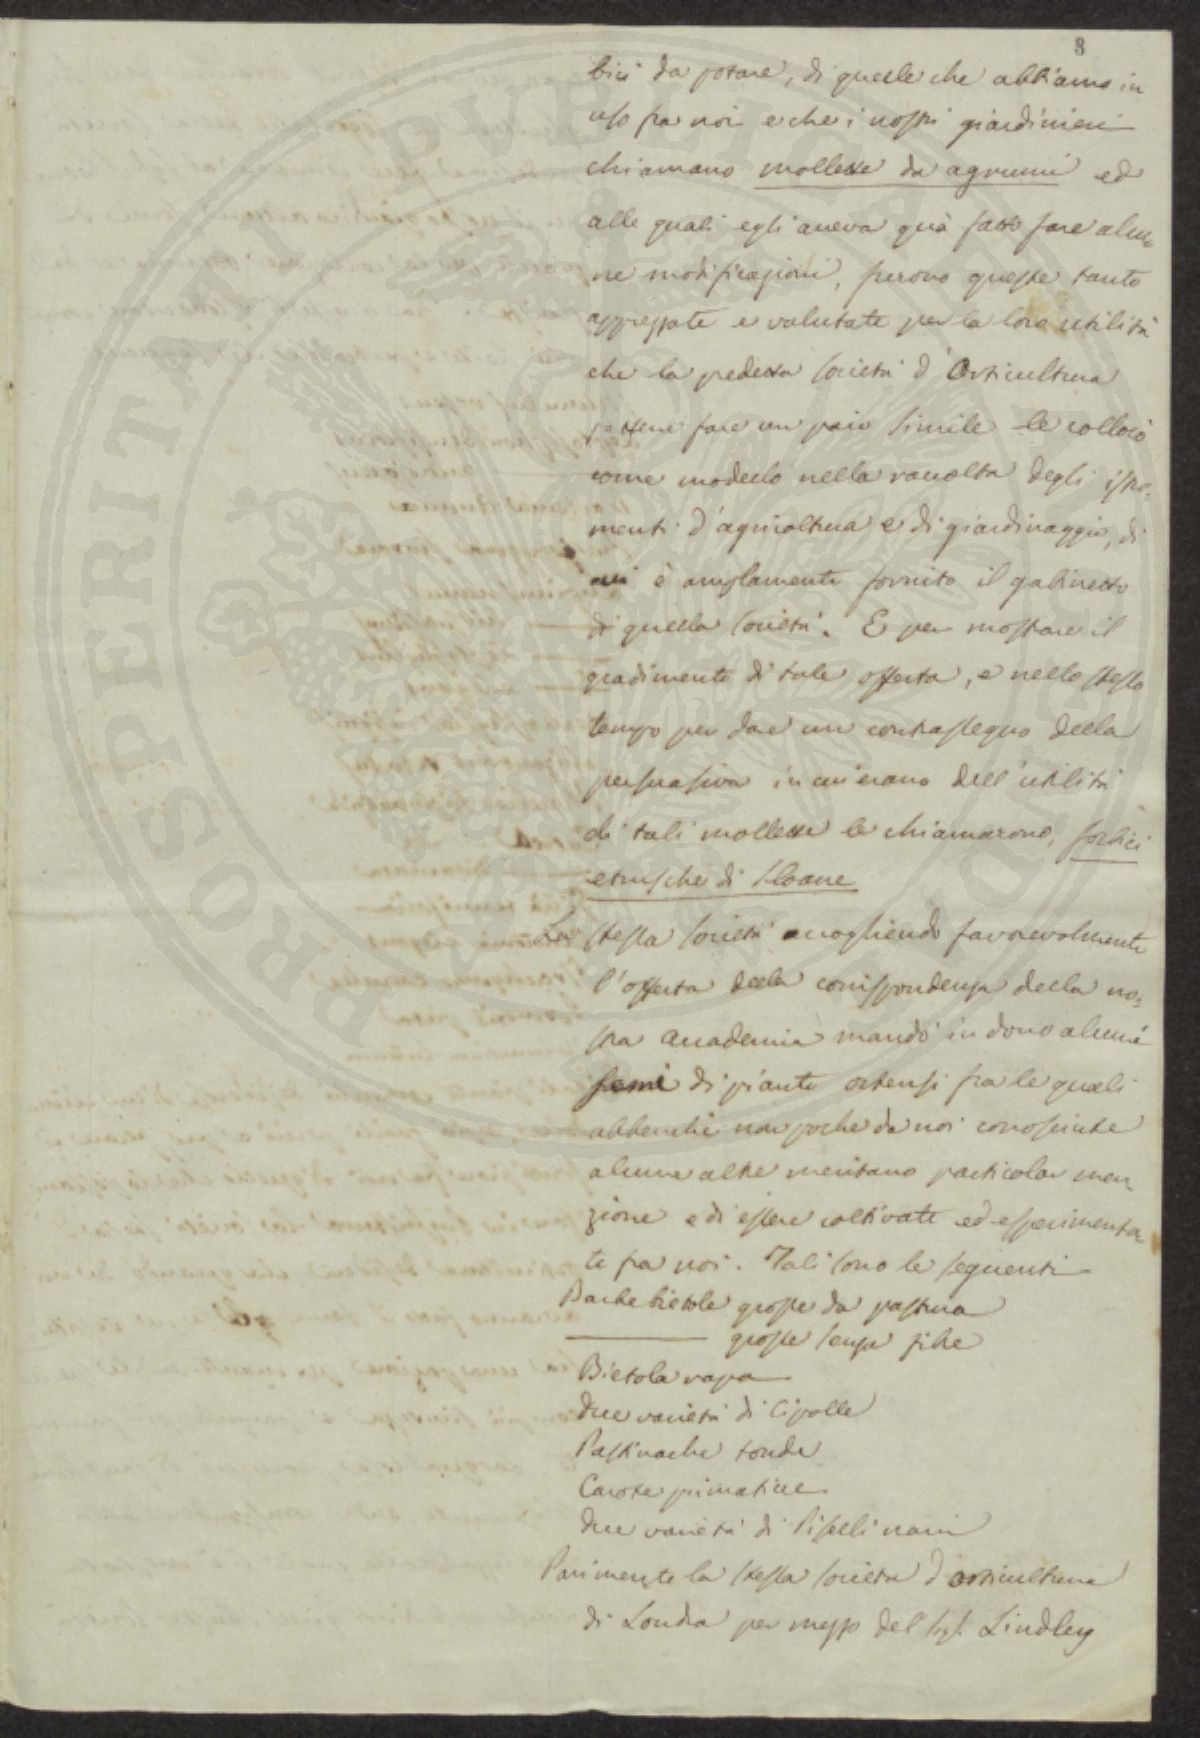 8
bici da potare, di quelle che abbiamo in
uso fra noi e che i nostri giardinieri
chiamano mollette da agrumi ed
alle quali egli aveva quà fatto fare alcu-
ne modificazioni, furono queste tanto
apprezzate e valutate per la loro utilità
che la predetta Società d'Orticultura
fattene fare un paio simile le collocò
come modello nella raccolta degli istru-
menti d'agricoltura e di giardinaggio, di
cui è amplamente fornito il gabinetto
di quella Società. E per mostrare il
gradimento di tale offerta, e nello stesso
tempo per dare un contrassegno della
persuasiva in cui erano dell'utilità
di tali mollette le chiamarono, forbici
etrusche di Sloane
La stessa Società accogliendo favorevolmente
l'offerta della corrispondenza della no-
stra Accademia mandò in dono alcuni
semi di piante ortensi fra le quali
abbenchè non poche da noi conosciute
alcune altre meritano particolar men-
zione e di essere coltivate ed esperimenta-
te fra noi. Tali sono le seguenti
Barbebietole grosse da pastura
grosse senza fibre
Bietola rapa
due varietà di Cipolle
Pastinache tonde
Carote primaticce
due varietà di Piselli nani
Parimente la stessa Società d'orticultura
di Londra per mezzo del Sig. Lindley
PROSPERITATI PVBLICAE